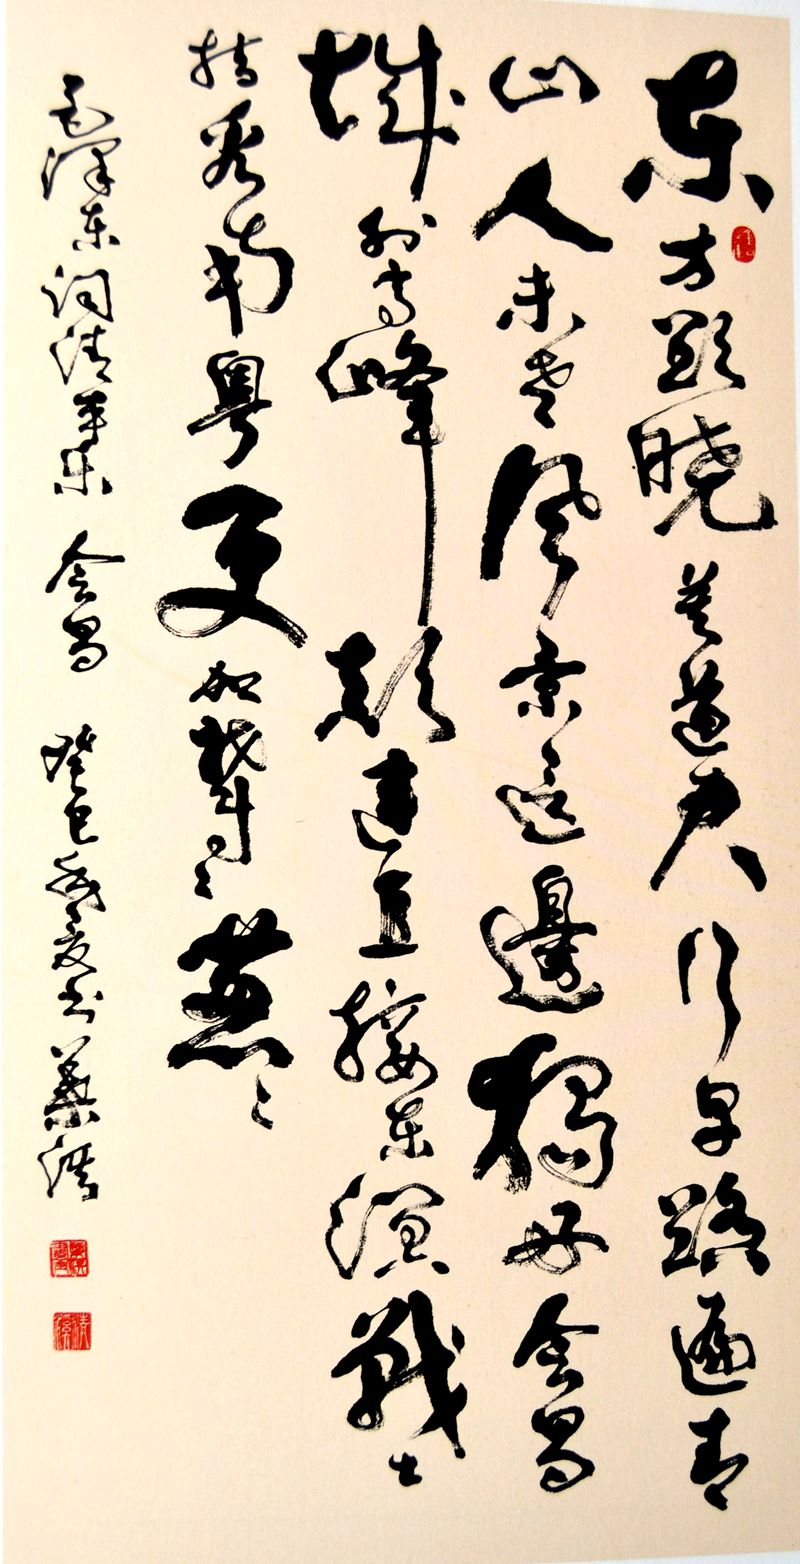 东方欲晓莫道君行早踏遍青
山人未老风景这邊獨好会昌
城外高峰颠连直接东溟戰士
指看南粤更加郁〻葱〻
毛泽东词清平乐 会昌 癸巳盛夏书